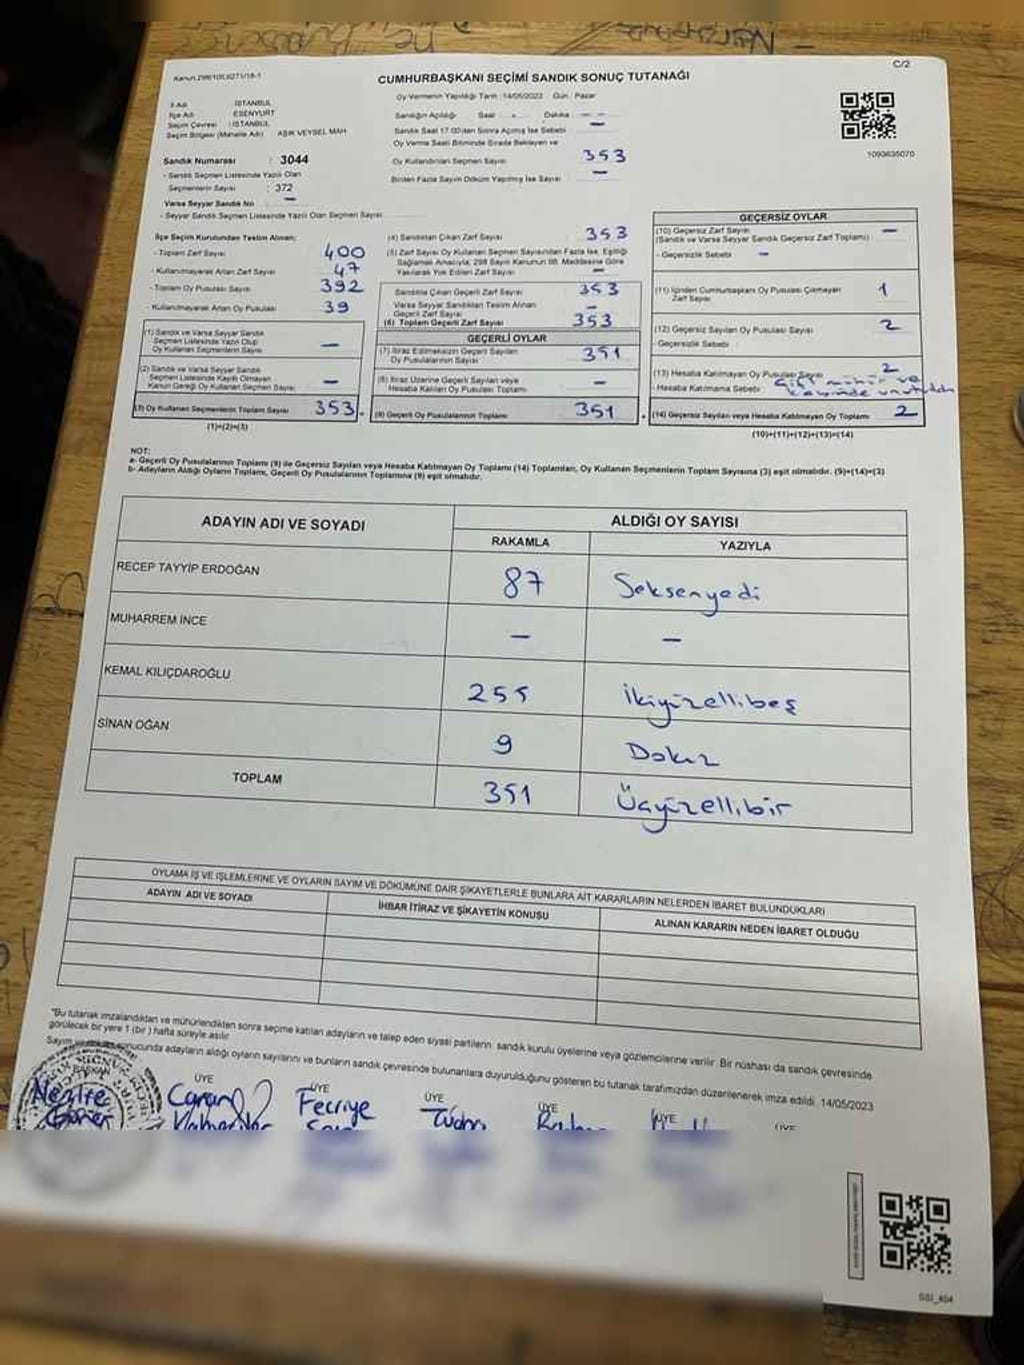 C/2
CUMHURBAŞKANI SEÇİMİ SANDIK SONUÇ TUTANAĞI
İl Adı : İSTANBUL
İlçe Adı : ESENYURT
Seçim Çevresi : İSTANBUL
Seçim Bölgesi (Mahalle Adı) : AŞIK VEYSEL MAH
Sandık Numarası : 3044
- Sandık Seçmen Listesinde Yazılı Olan
Seçmenlerin Sayısı : 372
Varsa Seyyar Sandık No –
- Seyyar Sandık Seçmen Listesinde Yazılı Olan Seçmen Sayısı
Oy Vermenin Yapıldığı Tarih : 14/05/2023 Gün : Pazar
Sandığın Açıldığı Saat Dakika
Sandık Saat 17.00'den Sonra Açılmış İse Sebebi –
Oy Verme Saati Bitiminde Sırada Bekleyen ve
Oy Kullandırılan Seçmen Sayısı 353
Birden Fazla Sayım Döküm Yapılmış İse Sayısı –
1093635070
İlçe Seçim Kurulundan Teslim Alınan;
- Toplam Zarf Sayısı 400
- Kullanılmayarak Artan Zarf Sayısı 47
- Toplam Oy Pusulası Sayısı 392
- Kullanılmayarak Artan Oy Pusulası 39
(1) Sandık ve Varsa Seyyar Sandık
Seçmen Listesinde Yazılı Olup
Oy Kullanan Seçmenlerin Sayısı –
(2) Sandık ve Varsa Seyyar Sandık
Seçmen Listesinde Kayıtlı Olmayan
Kanun Gereği Oy Kullanan Seçmen Sayısı –
(3) Oy Kullanan Seçmenlerin Toplam Sayısı 353
(1)+(2)=(3)
(4) Sandıktan Çıkan Zarf Sayısı 353
(5) Zarf Sayısı Oy Kullanan Seçmen Sayısından Fazla İse, Eşitliği
Sağlamak Amacıyla, 298 Sayılı Kanunun 98. Maddesine Göre
Yakılarak Yok Edilen Zarf Sayısı –
Sandıkta Çıkan Geçerli Zarf Sayısı 353
Varsa Seyyar Sandıktan Teslim Alınan
Geçerli Zarf Sayısı –
(6) Toplam Geçerli Zarf Sayısı 353
GEÇERLİ OYLAR
(7) İtiraz Edilmeksizin Geçerli Sayılan
Oy Pusulalarının Sayısı 351
(8) İtiraz Üzerine Geçerli Sayılan veya
Hesaba Katılan Oy Pusulası Toplamı –
(9) Geçerli Oy Pusulalarının Toplamı 351
GEÇERSİZ OYLAR
(10) Geçersiz Zarf Sayısı –
(Sandık ve Varsa Seyyar Sandık Geçersiz Zarf Toplamı)
- Geçersizlik Sebebi –
(11) İçinden Cumhurbaşkanı Oy Pusulası Çıkmayan
Zarf Sayısı 1
(12) Geçersiz Sayılan Oy Pusulası Sayısı 2
- Geçersizlik Sebebi
(13) Hesaba Katılmayan Oy Pusulası Sayısı 2
- Hesaba Katılmama Sebebi Çift mühür ve
(14) Geçersiz Sayılan veya Hesaba Katılmayan Oy Toplamı 2
(10)+(11)+(12)+(13)=(14)
NOT:
a- Geçerli Oy Pusulalarının Toplamı (9) ile Geçersiz Sayılan veya Hesaba Katılmayan Oy Toplamı (14) Toplamları, Oy Kullanan Seçmenlerin Toplam Sayısına (3) eşit olmalıdır. (9)+(14)=(3)
b- Adayların Aldığı Oyların Toplamı, Geçerli Oy Pusulalarının Toplamına (9) eşit olmalıdır.
ADAYIN ADI VE SOYADI ALDIĞI OY SAYISI
RAKAMLA YAZIYLA
RECEP TAYYİP ERDOĞAN 87 Seksenyedi
MUHARREM İNCE – –
KEMAL KILIÇDAROĞLU 255 İkiyüzellibeş
SİNAN OĞAN 9 Dokuz
TOPLAM 351 Üçyüzellibir
OYLAMA İŞ VE İŞLEMLERİNE VE OYLARIN SAYIM VE DÖKÜMÜNE DAİR ŞİKAYETLERLE BUNLARA AİT KARARLARIN NELERDEN İBARET BULUNDUKLARI
ADAYIN ADI VE SOYADI İHBAR İTİRAZ VE ŞİKAYETİN KONUSU ALINAN KARARIN NEDEN İBARET OLDUĞU
"Bu tutanak imzalandıktan ve mühürlendikten sonra seçime katılan adayların ve talep eden siyasi partilerin sandık kurulu üyelerine veya gözlemcilerine verilir. Bir nüshası da sandık çevresinde
görülecek bir yere 1 (bir) hafta süreyle asılır.
sonucunda adayların aldığı oyların sayılarını ve bunların sandık çevresinde bulunanlara duyurulduğunu gösteren bu tutanak tarafımızdan düzenlenerek imza edildi. 14/05/2023
BAŞKAN ÜYE ÜYE ÜYE ÜYE ÜYE ÜYE
Fecriye
SSI_404